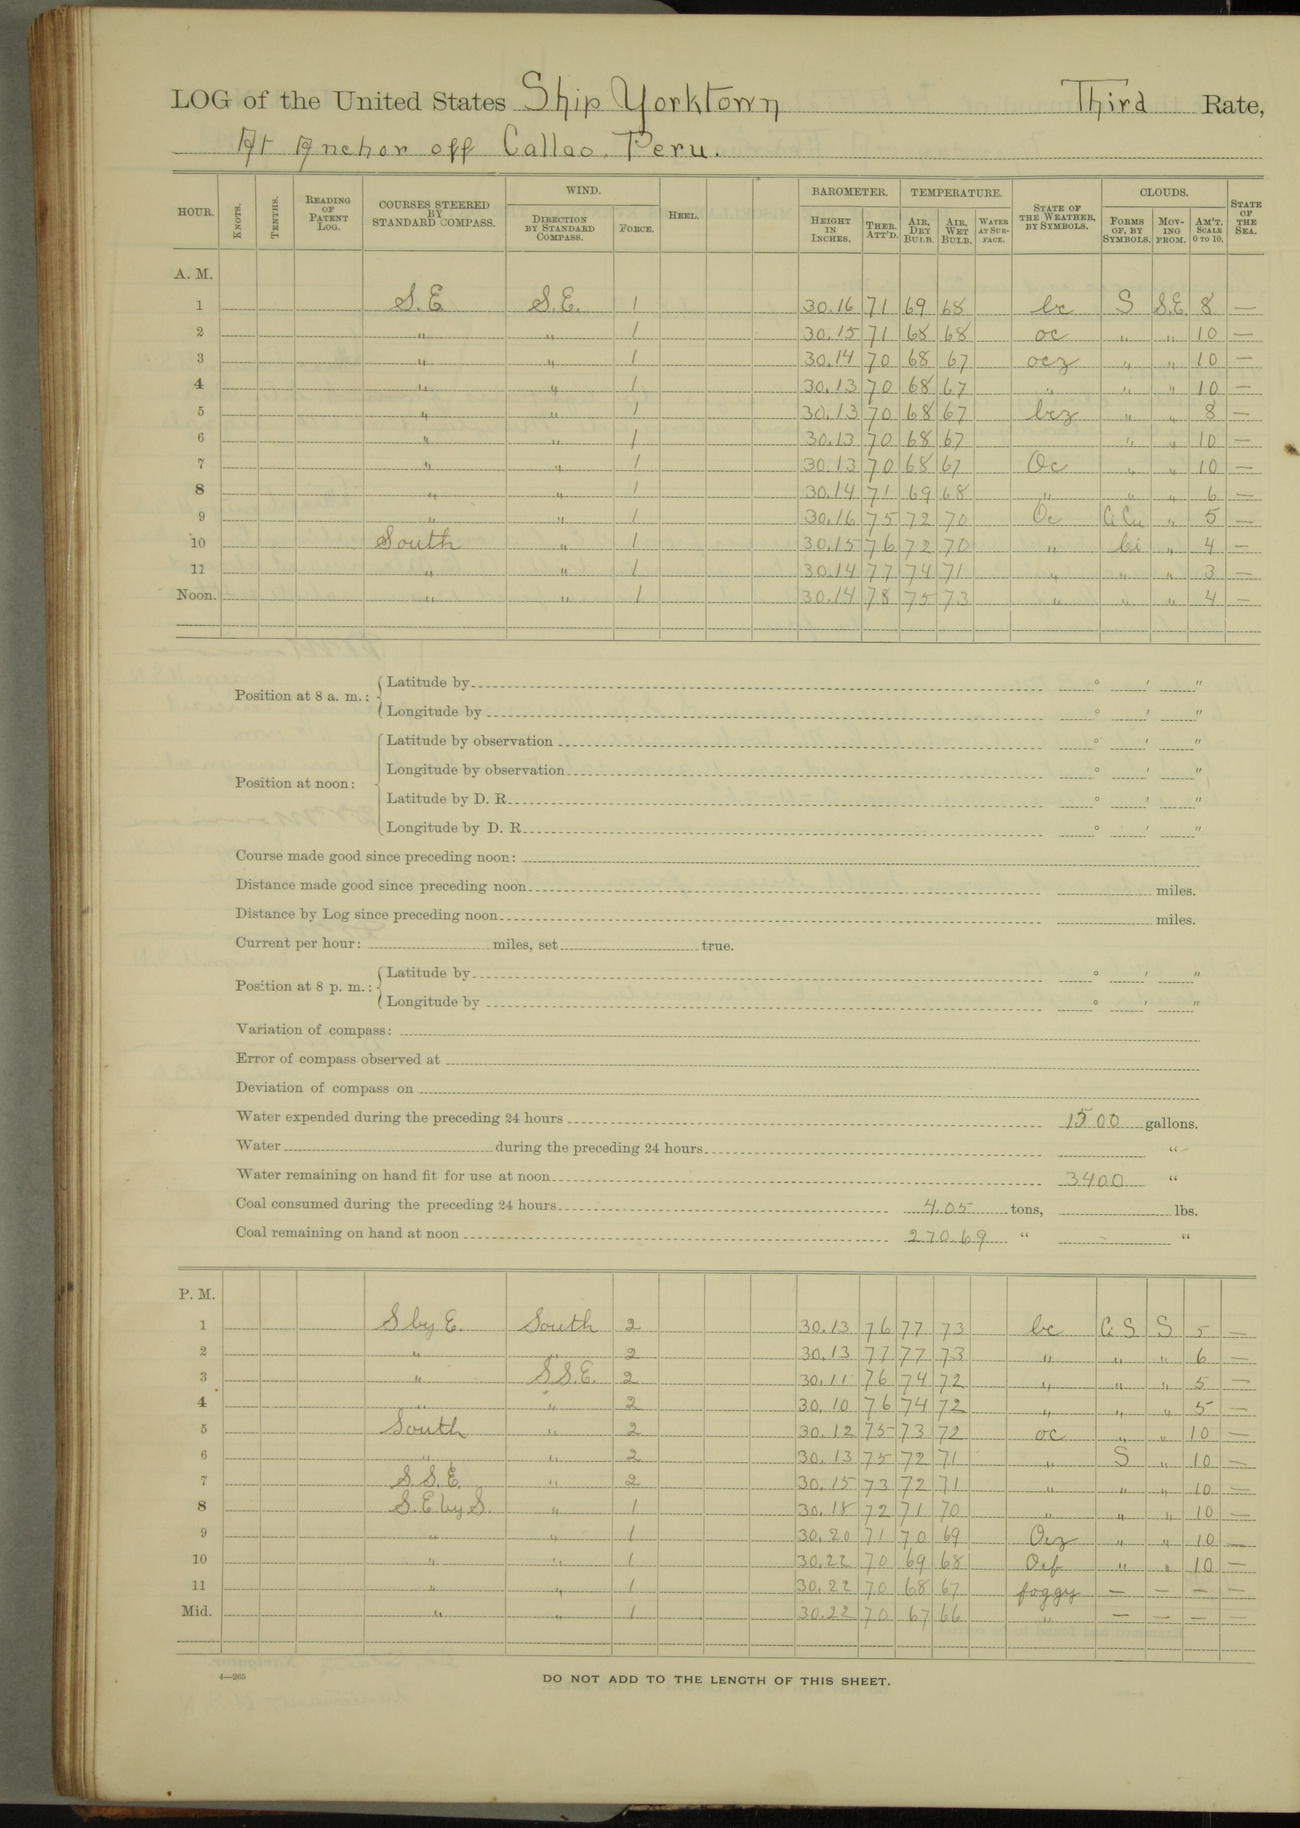 LOG of the United States Ship Yorktown Third Rate,
At Anchor off Callao, Peru.
HOUR. KNOTS. TENTHS. READING OF PATENT LOG. COURSES STEERED BY STANDARD COMPASS. WIND. DIRECTION BY STANDARD COMPASS. FORCE. HEEL. BAROMETER. HEIGHT IN INCHES. THER. ATT'D. TEMPERATURE. AIR, DRY BULB. AIR, WET BULB. WATER AT SURFACE. STATE OF THE WEATHER, BY SYMBOLS. CLOUDS. FORMS OF, BY SYMBOLS. MOVING FROM. AM'T. SCALE 0 TO 10. STATE OF THE SEA.
A. M.
1 S.E S.E. 1 30.16 71 69 68 bc S S.E. 8 —
2 " " 1 30.15 71 68 68 oc " " 10 —
3 " " 1 30.14 70 68 67 ocz " " 10 —
4 " " 1 30.13 70 68 67 " " " 10 —
5 " " 1 30.13 70 68 67 bcz " " 8 —
6 " " 1 30.13 70 68 67 " " 10 —
7 " " 1 30.13 70 68 67 Oc " " 10 —
8 " " 1 30.14 71 69 68 " " " 6 —
9 " " 1 30.16 75 72 70 Ci Cu " 5 —
10 South " 1 30.15 76 72 70 " " 4 —
11 " " 1 30.14 77 74 71 " " " 3 —
Noon. " " 1 30.14 78 75 73 " " " 4 —
Position at 8 a. m.: Latitude by ° ' "
Longitude by ° ' "
Position at noon: Latitude by observation ° ' "
Longitude by observation ° ' "
Latitude by D. R. ° ' "
Longitude by D. R. ° ' "
Course made good since preceding noon:
Distance made good since preceding noon miles.
Distance by Log since preceding noon miles.
Current per hour: miles, set true.
Position at 8 p. m.: Latitude by ° ' "
Longitude by ° ' "
Variation of compass:
Error of compass observed at
Deviation of compass on
Water expended during the preceding 24 hours 1500 gallons.
Water during the preceding 24 hours "
Water remaining on hand fit for use at noon 3400 "
Coal consumed during the preceding 24 hours 4.05 tons, lbs.
Coal remaining on hand at noon 270.69 " "
P. M.
1 S by E. South 2 30.13 76 77 73 bc Ci S S 5 —
2 " " 2 30.13 77 77 73 " " " 6 —
3 " S.S.E. 2 30.11 76 74 72 " " " 5 —
4 " " 2 30.10 76 74 72 " " " 5 —
5 South " 2 30.12 75 73 72 oc " " 10 —
6 " " 2 30.13 75 72 71 " S " 10 —
7 S.S.E. " 2 30.15 73 72 71 " " " 10 —
8 S.E by S. " 1 30.18 72 71 70 " " " 10 —
9 " " 1 30.20 71 70 69 Ocz " " 10 —
10 " " 1 30.22 70 69 68 Ocf " " 10 —
11 " " 1 30.22 70 68 67 foggy — — — —
Mid. " " 1 30.22 70 67 66 " — — — —
4—265
DO NOT ADD TO THE LENGTH OF THIS SHEET.